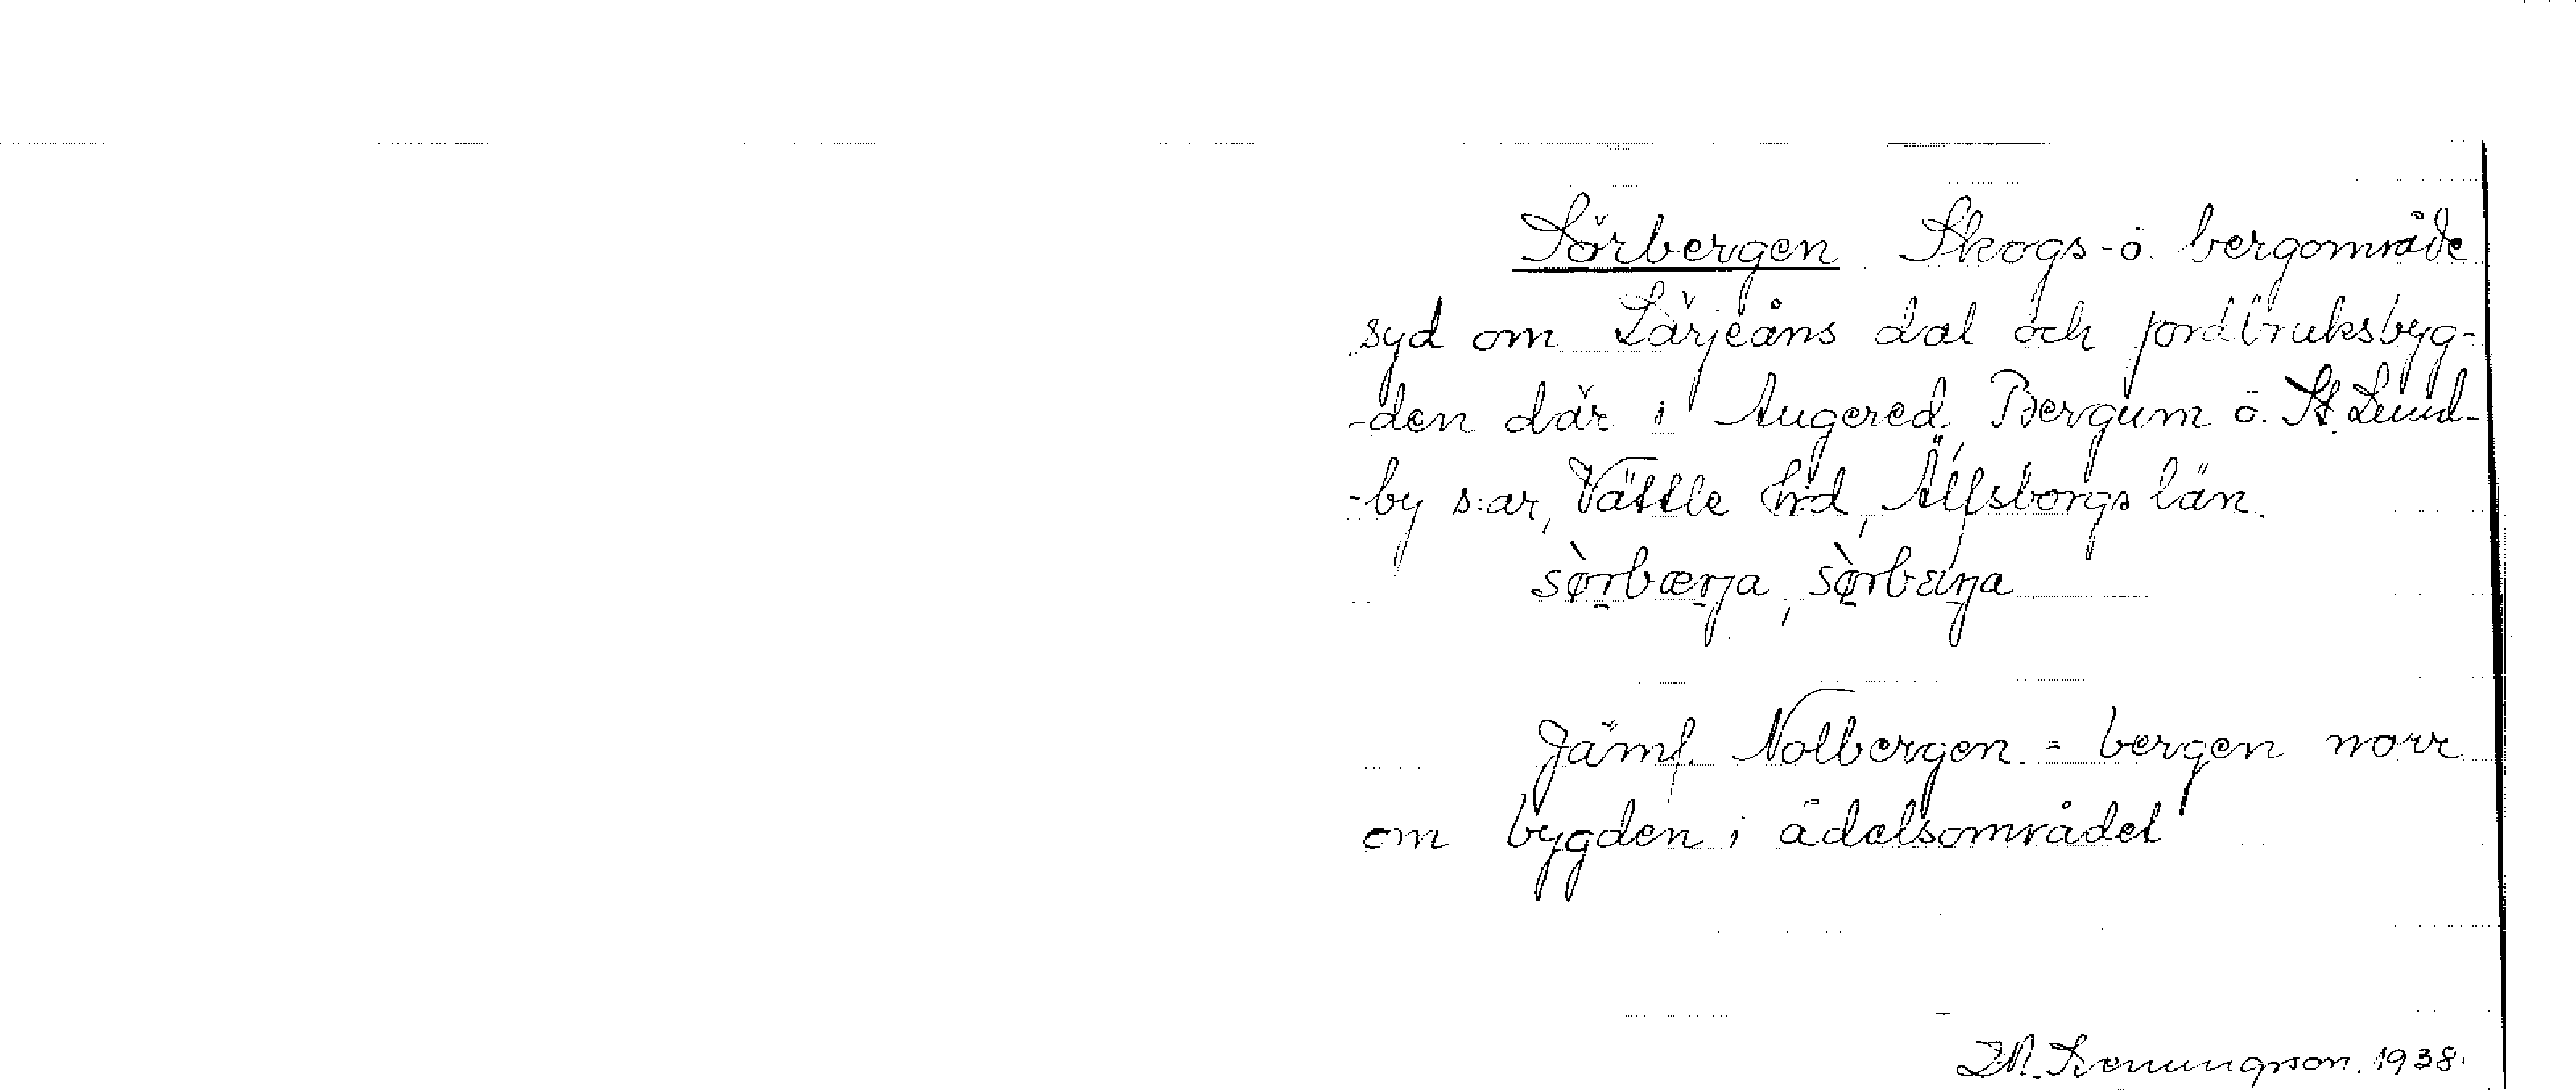 Sörbergen. Skogs- o. bergområde
syd om Lärjeåns dal och jordbruksbyg-
-den där i Angered, Bergum o. St. Lund-
-by s:ar, Vättle hd, Älfsborgs län.
sòrbærja, sòrbɛrja
Jämf. Nolbergen. = bergen norr
om bygden i ådalsområdet
1938.